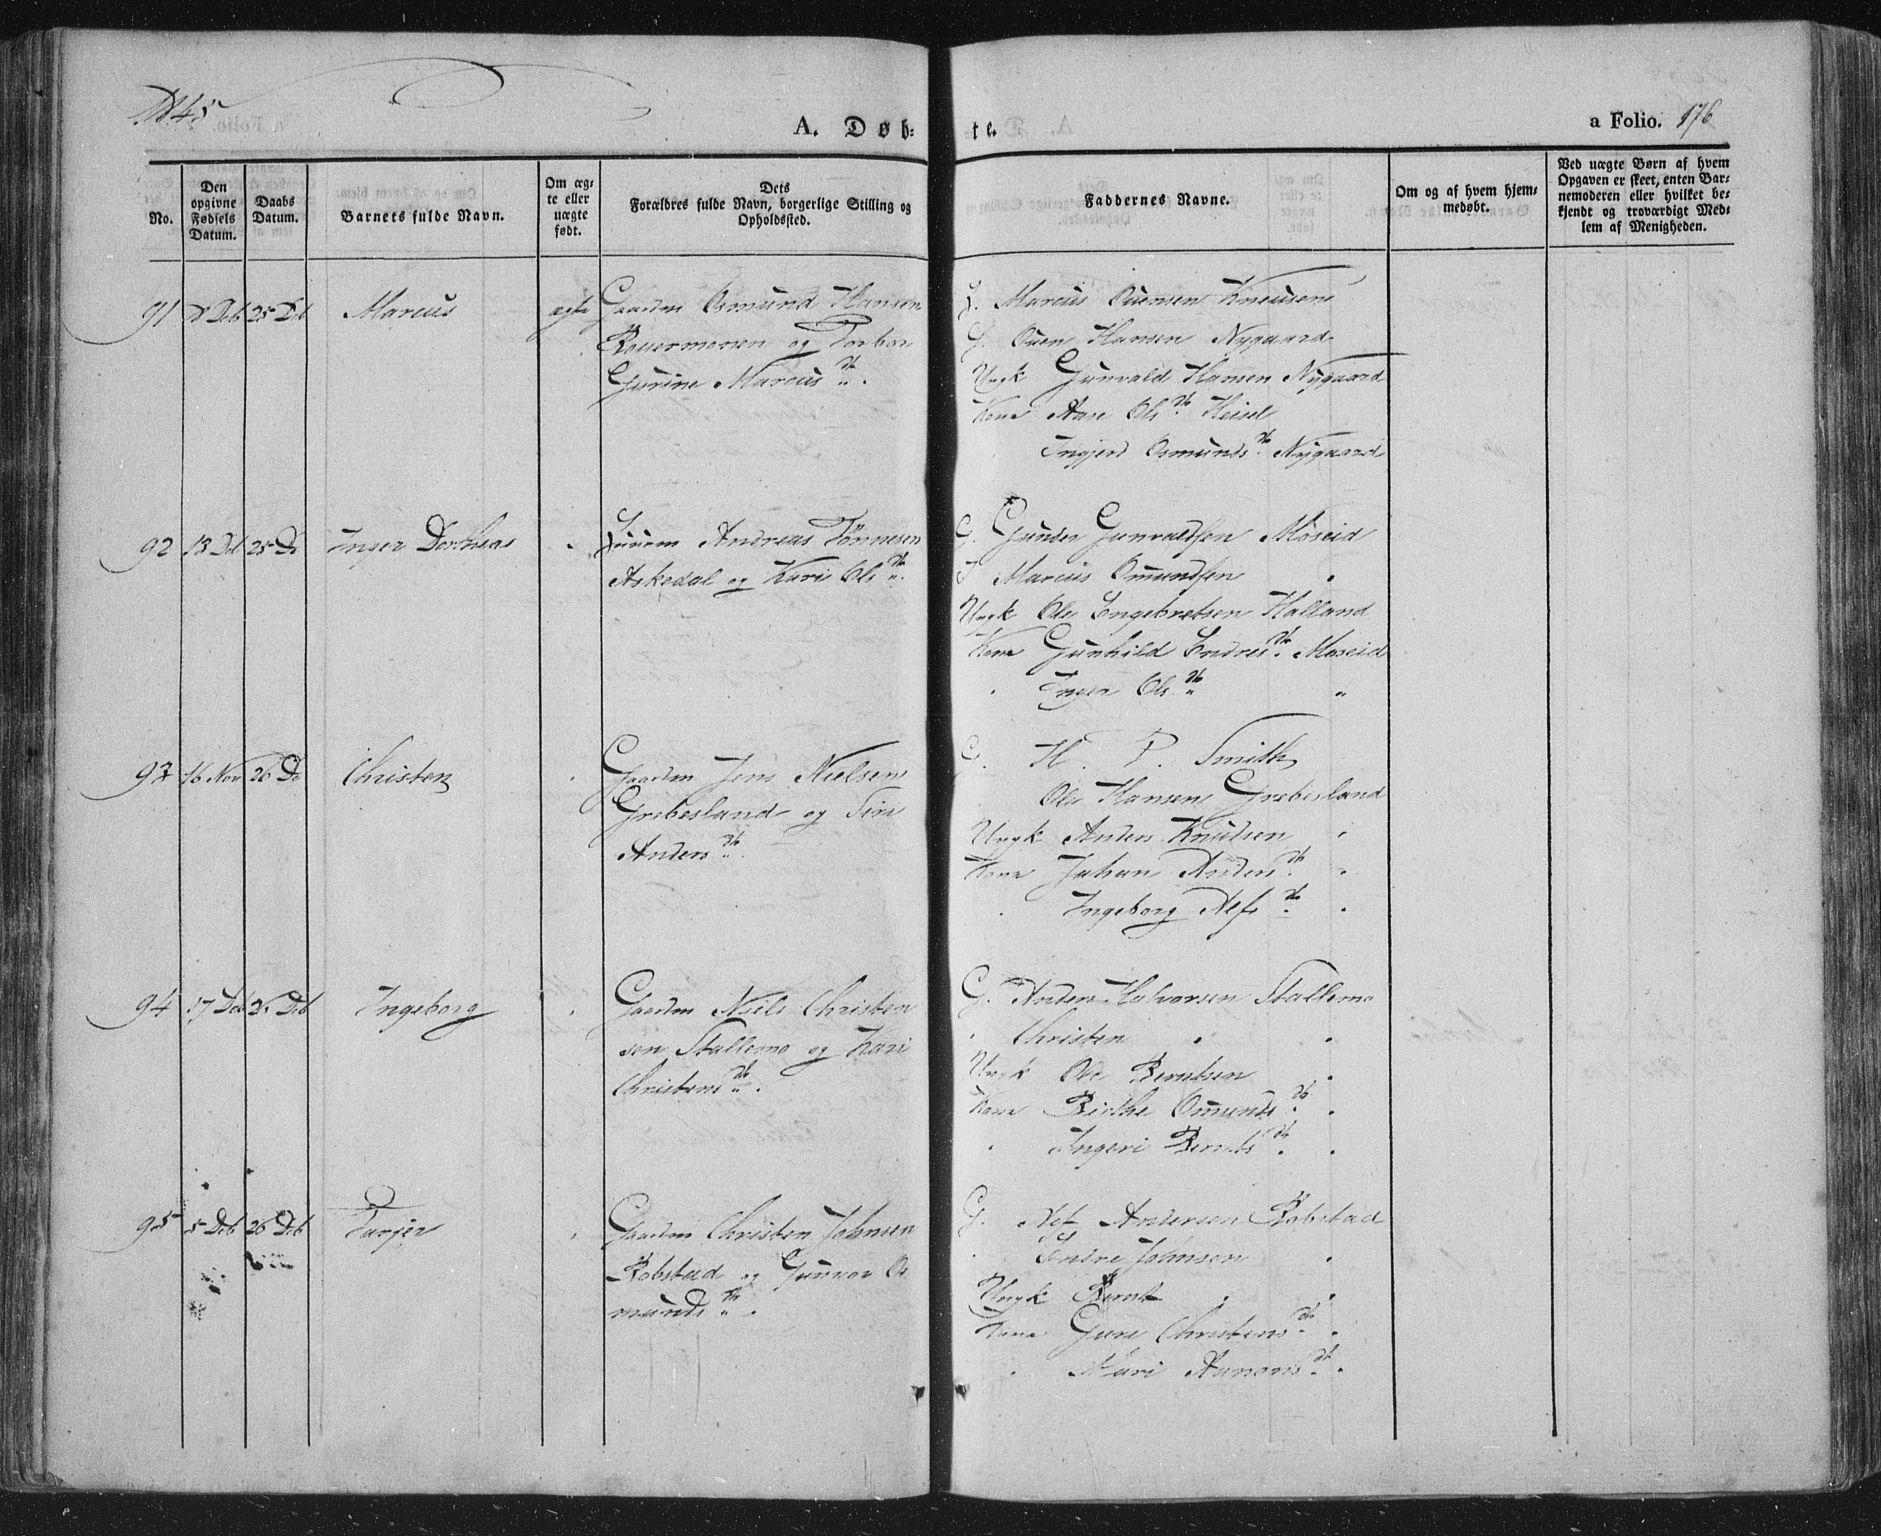 1845
A. Døb-
te.
a Folio. 176
No.
Den opgivne Fødsels Datum.
Daabs Datum.
Barnets fulde Navn.
Om ægte eller uægte født.
Dets Forældres fulde Navn, borgerlige Stilling og Opholdssted.
Faddernes Navne.
Om og af hvem hjemmedøbt.
Ved uægte Børn af hvem Opgaven er skeet, enten Barnemoderen eller hvilket bekjendt og troværdigt Medlem af Menigheden.
91 8 Deb 25 Deb Marcus ægte Gaardm Osmund Hansen
og Torbor
Gurine Marcus dtr.
G. Marcus Knudsen
G. Ouen Hansen Nygaard
Ungk Gunvald Hansen Nygaard
Kone Aase Ols dtr.
Ingjerd Osmunds dtr. Nygaard
92 13 Deb 25 D Inger Dorthea Andreas Tønnesen
Askedal og Kari Ols dtr.
G. Gunder Gunvaldsen Moseid
Marcus Omundsen "
Ungk Ole Engebretsen Halland
Kone Gunhild Endres dtr. Moseid
" Inger Ols dtr "
93 16 Nov 26 D Christen " Gaardm Jens Nielsen
Grebesland og Siri
Anders dtr.
G. H. P. Smith
Ole Hansen Grebesland
Ungk Anders Knudsen "
Kone Johan Anders dtr. "
" Ingeborg Alfs dtr. "
94 17 Deb 26 Deb Ingeborg " Gaardm Niels Christen
sen Stallemo og Kari
Christens dtr.
G. Anders Halvorsen Stallemo
" Christen " "
Ungk Ole Berntsen "
Kone Birthe Omunds dtr. "
" Ingeri Bernts dtr. "
95 5 Deb 26 Deb Turjer " Gaardm Christen Johnsen
Robstad og Gunnor Os
munds dtr.
G. Alf Andersen Robstad
" Endre Johnsen "
Ungk Bernt " "
Kone Guri Christens dtr. "
" Mari Aanons dtr. "